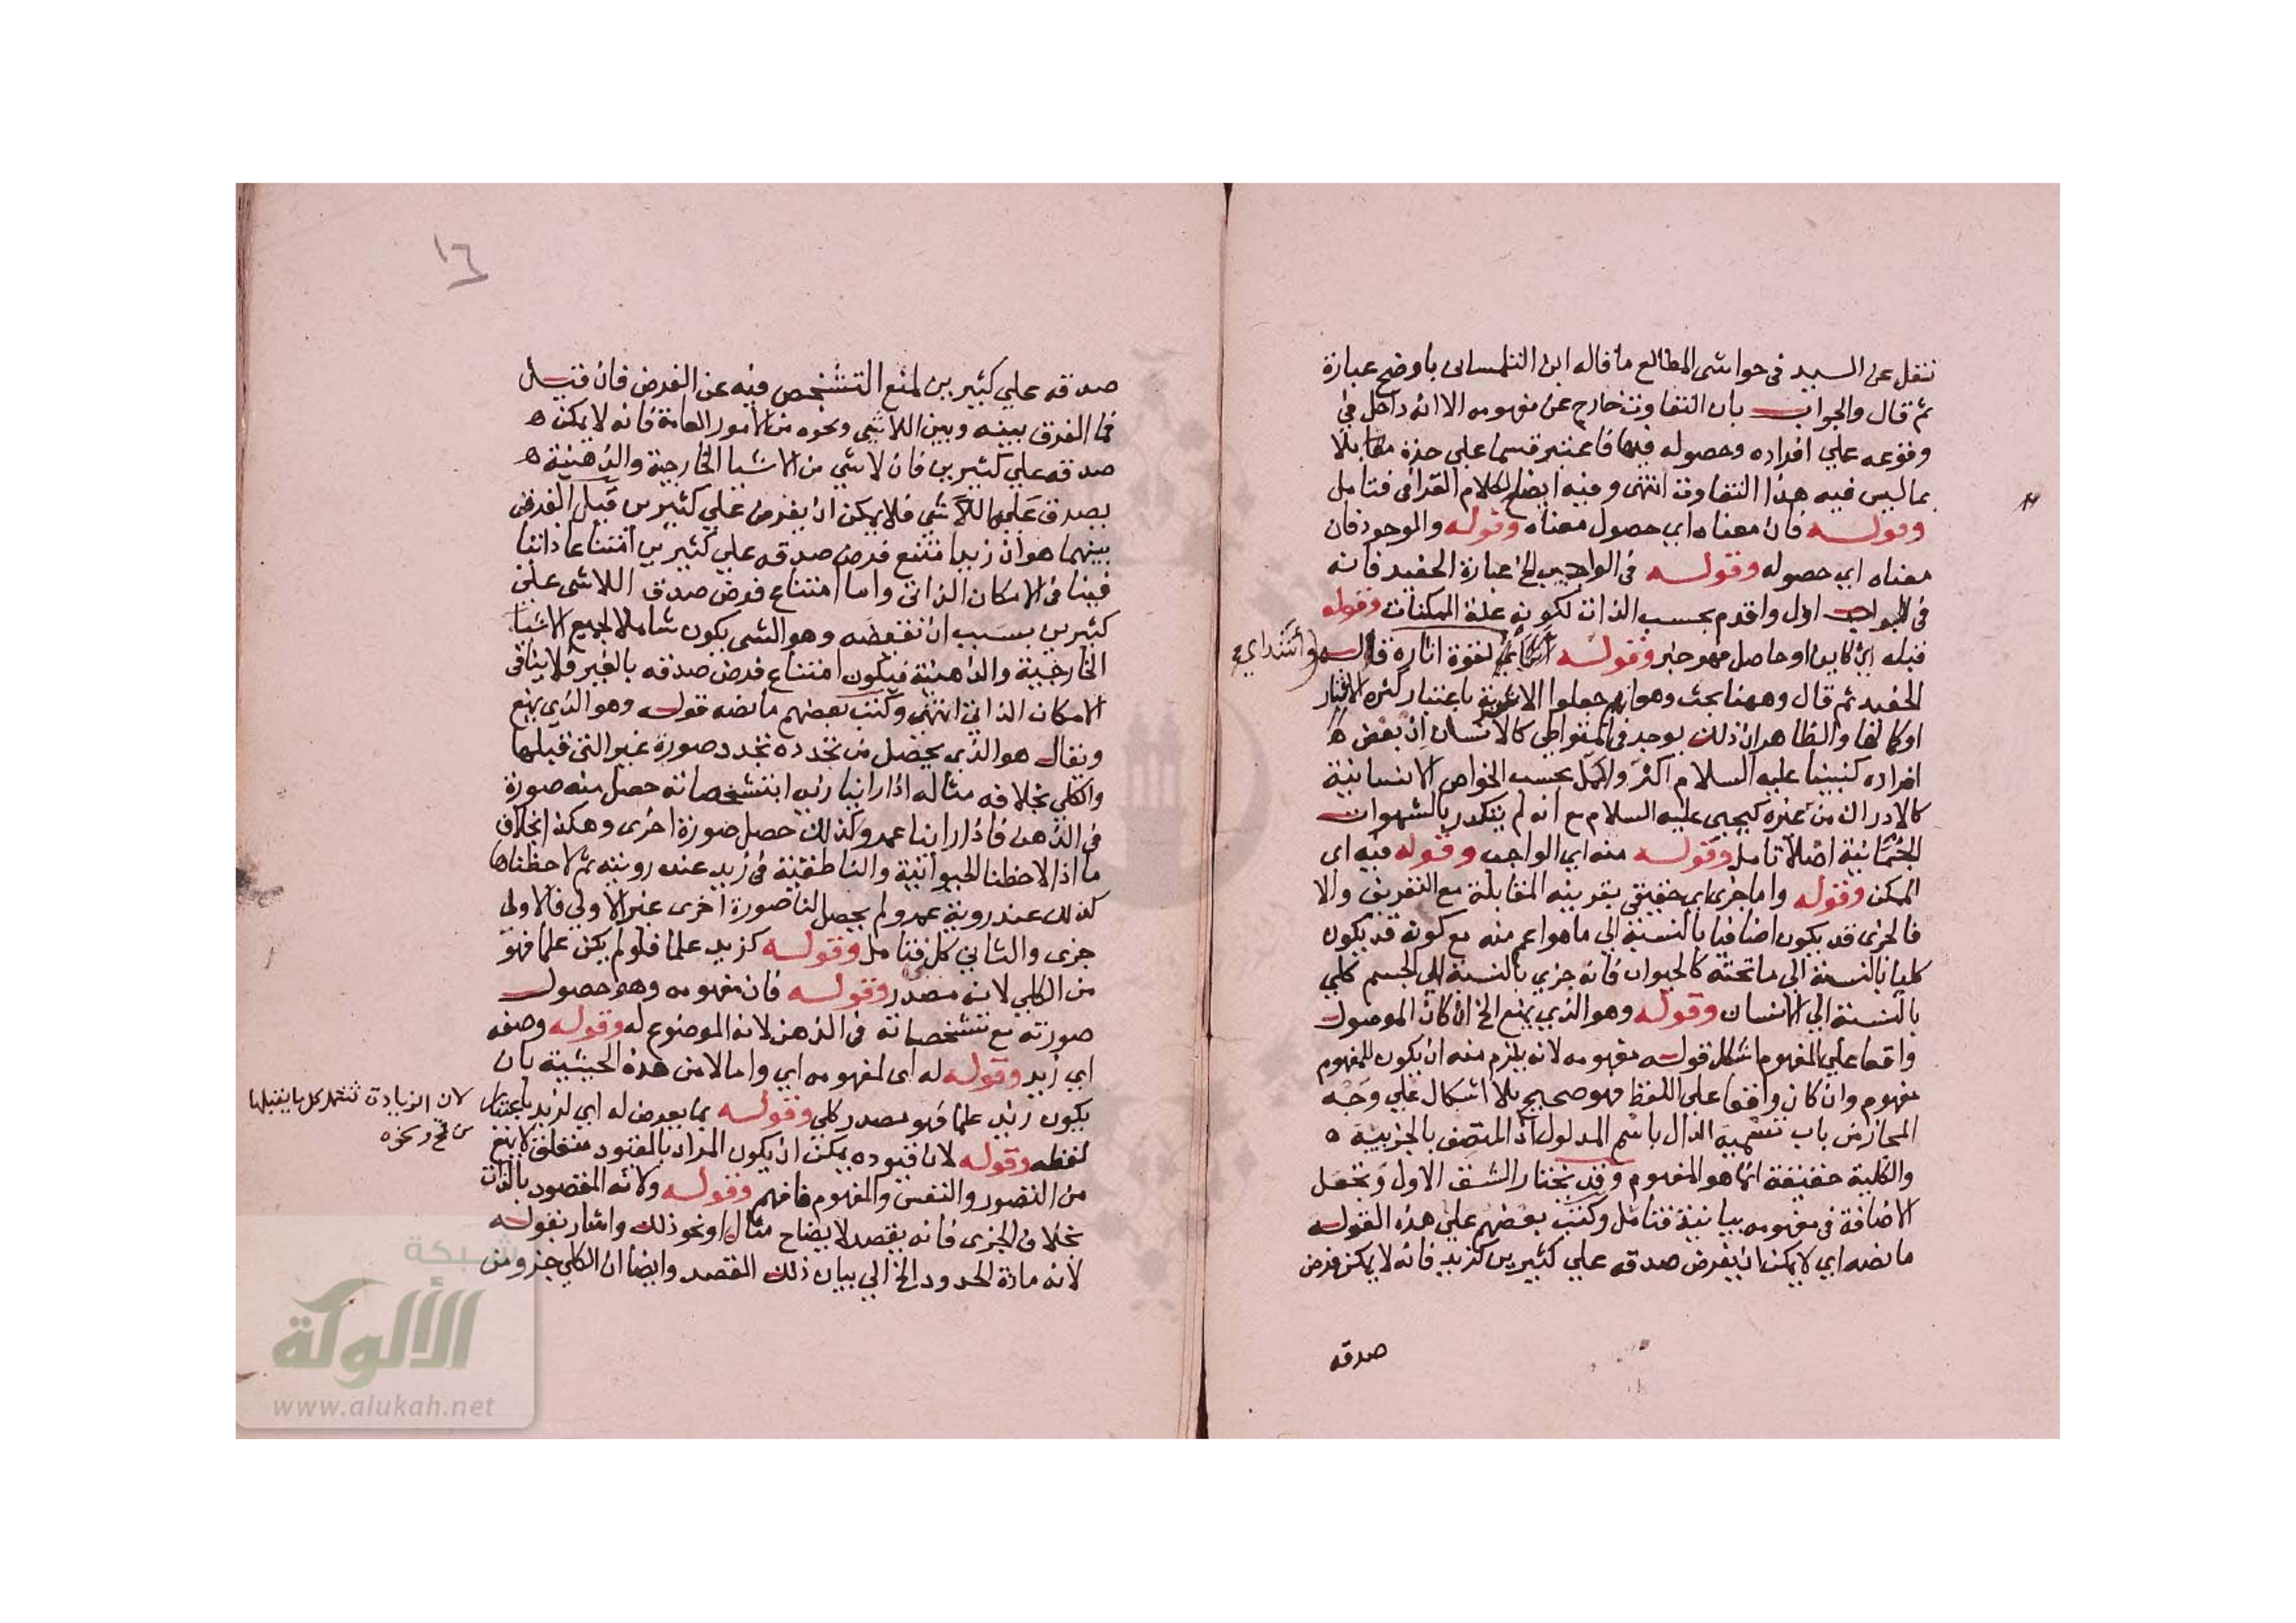 نقل عن السيد في حواشي المطالع ما قاله ابن التلمساني باوضح عبارة
ثم قال والجواب بان التفاوت خارج عن مفهومه الا انه داخل في
وقوعه علي افراده وحصوله فيها فاعتبر قسما علي حدة مقابلا
بما ليس فيه هذا التفاوت انتهي وفيه ايضاح لكلام القرافي فتامل
وقوله فان معناه اي حصول معناه وقوله والموجود فان
معناه اي حصوله وقوله في الواجب الخ عبارة الحفيد فانه
في الواجب اول واقدم بحسب الذات لكونه علة الممكنات وقوله
قبله اي كاين او حاصل فهو خبر وقوله لقوة اثاره قال
الحفيد ثم قال وههنا بحث وهو انهم جعلوا باعتبار كثرة الاثار
او كمالها والظاهر ان ذلك يوجد في المتواطي كالانسان ان بعض
افراده كنبينا عليه السلام اكثر واكمل بحسب الخواص الانسانية
كالادراك من غيره كيحيي عليه السلام مع انه لم يتكدر بالشهوات
الجسمانية اصلا تامل وقوله منه اي الواجب وقوله فيه اي
الممكن وقوله واما جزي اي حقيقي بقرينه المقابلة مع التعريف والا
فالجزي قد يكون اضافيا بالنسبة الي ما هو اعم منه مع كونه قد يكون
كليا بالنسبة الي ما تحته كالحيوان فانه جزي بالنسبة الي الجسم كلي
بالنسبة الي الانسان وقوله وهو الذي يمنع الخ ان كان الموصول
واقعا علي المفهوم اشكل قوله مفهومه لانه يلزم منه ان يكون للمفهوم
مفهوم وان كان واقعا علي اللفظ فهو صحيح بلا اشكال علي وجه
المجاز من باب تسمية الدال باسم المدلول اذ المتصف بالجزيية
والكلية حقيقة انما هو المفهوم وقد يختار الشق الاول وتجعل
الاضافة في مفهومه بيانية فتامل وكتب بعضهم علي هذه القوله
ما نصه اي لا يمكن ان يفرض صدقه علي كثيرين كزيد فانه لا يمكن فرض
صدقه
١٦
صدقه علي كثيرين لمنع التشخص فيه عن الفرض فان قيل
فما الفرق بينه وبين اللاشي ونحوه من الامور العامة فانه لا يمكن
صدقه علي كثيرين فان لا شي من الاشيا الخارجية والذهنية
يصدق عليها اللاشي فلا يمكن ان يفرض علي كثيرين قيل الفرق
بينهما هو ان زيدا ممتنع فرض صدقه علي كثيرين امتناعا ذاتيا
فينافي الامكان الذاتي واما امتناع فرض صدق اللاشي علي
كثيرين بسبب ان نقيضه وهو الشي يكون شاملا لجميع الاشيا
الخارجية والذهنية فيكون امتناع فرض صدقه بالغير فلا ينافي
الامكان الذاتي انتهي وكتب بعضهم ما نصه قوله وهو الذي يمنع
ويقال هو الذي يحصل من تجدده تجدد صورة غير التي قبلها
والكلي بخلافه مثاله اذا راينا زيدا بتشخصاته حصل منه صورة
في الذهن فاذا راينا عمرو كذلك حصل صورة اخري وهكذا بخلاف
ما اذا لاحظنا الحيوانية والناطقية في زيد عند رويته ثم لاحظناها
كذلك عند روية عمرو لم يحصل لنا صورة اخري غير الاولي فالاولي
جزي والثاني كلي فتامل وقوله كزيد علما فلو لم يكن علما فهو
من الكلي لانه مصدر وقوله فان مفهومه وهو حصول
صورته مع تشخصاته في الذهن لانه الموضوع له وقوله وصفه
اي زيد وقوله له اي لمفهومه اي واما لا من هذه الحيثية بان
يكون زيد علما فهو مصدر كلي وقوله بما يعرض له اي لزيد باعتبار
لان الزيادة تشمل كل ما يقبلها
من قمح ونحوه
لفظه وقوله لان قيوده يمكن ان يكون المراد بالقيود متعلق لا يمنع
من التصور والنفس والمفهوم فافهم وقوله ولانه المقصود بالذات
بخلاف الجزي فانه يقصد لايضاح مثال او نحو ذلك واشار بقوله
لانه مادة الحدود الخ الي بيان ذلك المقصد وايضا ان الكلي جزو من
شبكة
الألوكة
www.alukah.net